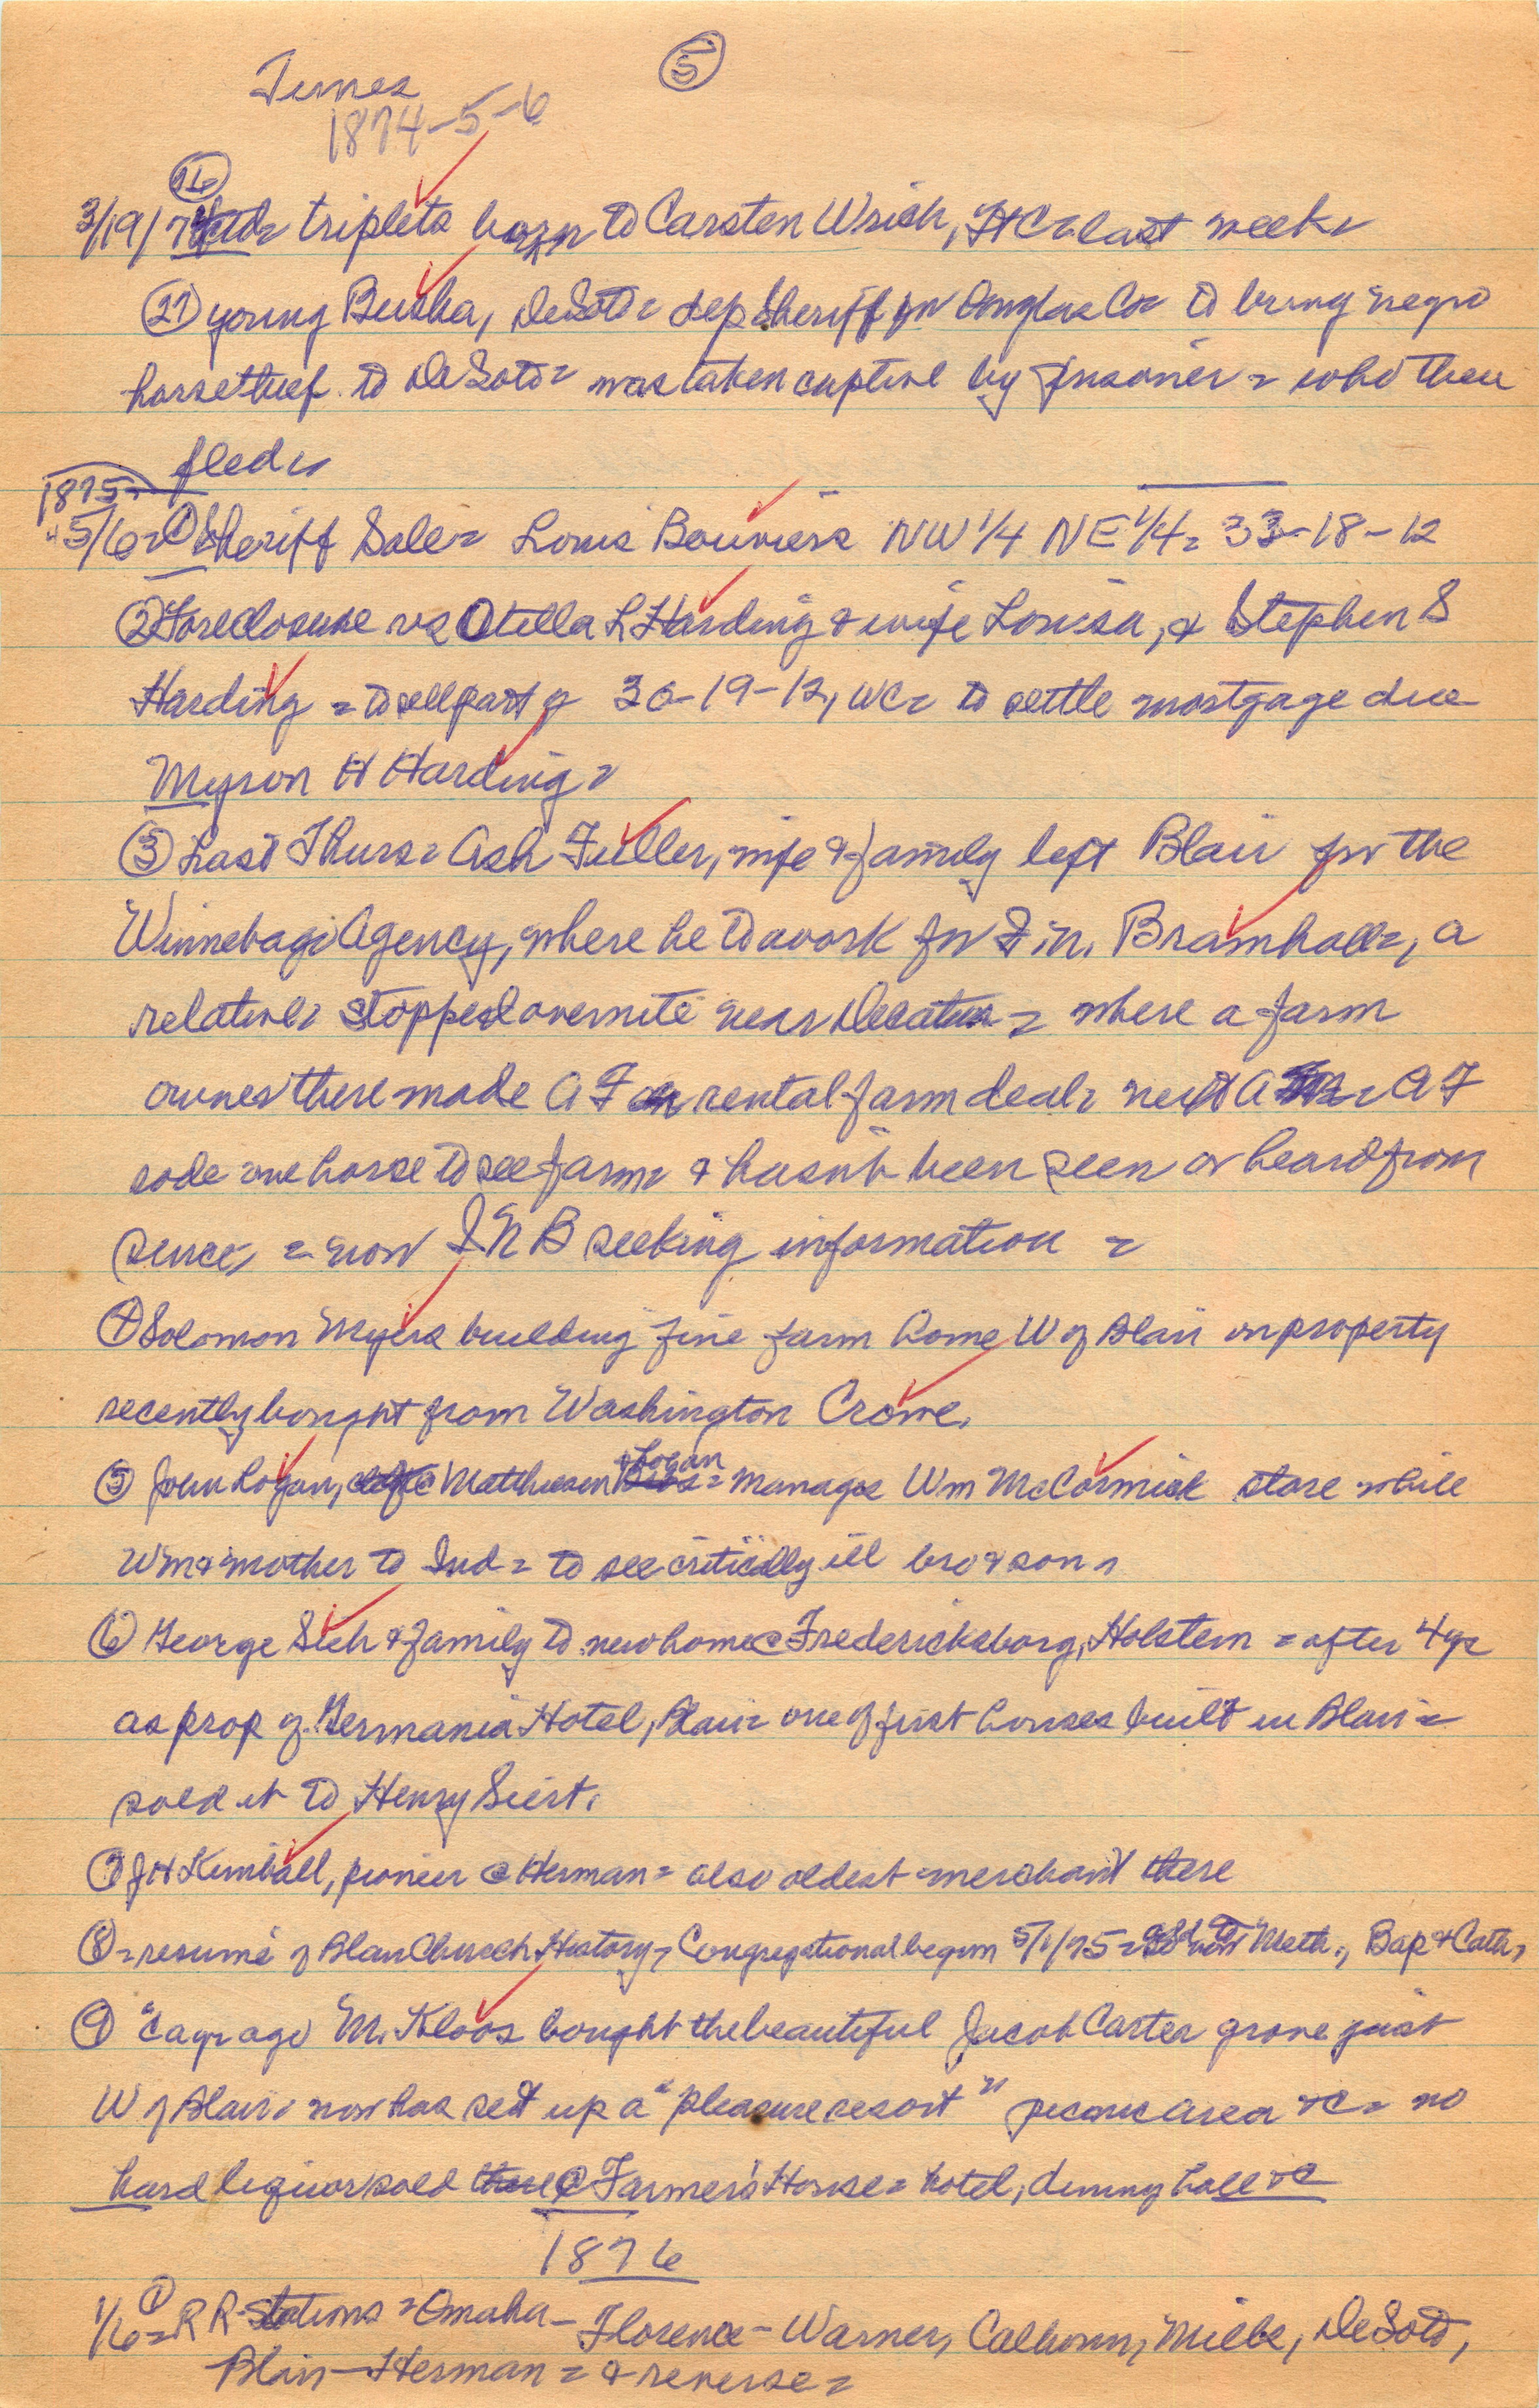 Times 5
1874-5-6
16
3/19/74= triplets born to Carsten Wrich, Ft C= last week=
21 young Beisha, DeSoto= dep sheriff for Douglas Co= to bring negro
horsethief to DeSoto= was taken captive by prisoner = who then
fled=
1875=
5/6= 1 Sheriff Sale= Louis Bouviers NW 1/4 NE 1/4= 33-18-12
2 Foreclosure vs Otella L Harding & wife Louisa, & Stephen S
Harding = to sell part of 30-19-12, WC= to settle mortgage due
Myron H Harding=
3 Last Thurs= Ash Fuller, wife & family left Blair for the
Winnebago Agency, where he to work for Bramhall=, a
relative= stopped overnite near Decatur = where a farm
owner there made A F rental farm deal= next A = A F
rode one horse to see farm= & hasn't been seen or heard from
since, = now B seeking information =
4 Solomon Myers building fine farm home W of Blair on property
recently bought from Washington Crowe.
5 John Logan, Matthiesen & Logan = manages Wm McCormick store while
Wm & mother to Ind= to see critically ill bro & son=
6 George Sieh & family to new home @ Fredericksborg, Holstein = after 4 yrs
as prop of Germania Hotel, Blair= one of first houses built in Blair=
sold it to Henry Siert.
7 J H Kimball, pioneer @ Herman= also oldest merchant there
8= resumé of Blair Church History= Congregational begun 5/1/75= Meth., Bap & Cath=
9 "a yr ago M. Kloos bought the beautiful Jacob Carter grove just
W of Blair= now has set up a "pleasure resort" picnic area &c= no
hard liquor sold @ Farmer's House= hotel, dining hall &c
1876
1/6= 1 RR stations= Omaha- Florence- Warner, Calhoun, Mills, DeSoto,
Blair- Herman = & reverse=